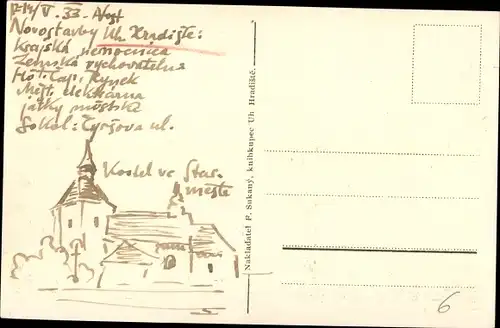 12-14/V. 33.
Novostavby Uh. Hradiště:
Krajská nemocnica
Zemská vychovatelna
Hot. Čap. Rynek
Měst. elektrárna
jatky městské
Sokol: Tyršova ul.
Kostel ve Star.
městě
Nakladatel F. Sakaný, knihkupec Uh Hradiště.
6